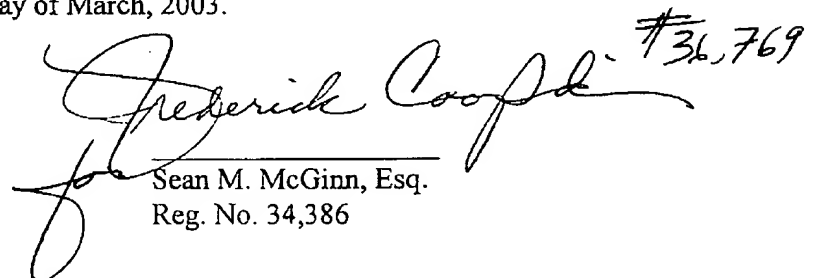 ay of March, 2003.
Frederick #36,769
for
Sean M. McGinn, Esq.
Reg. No. 34,386